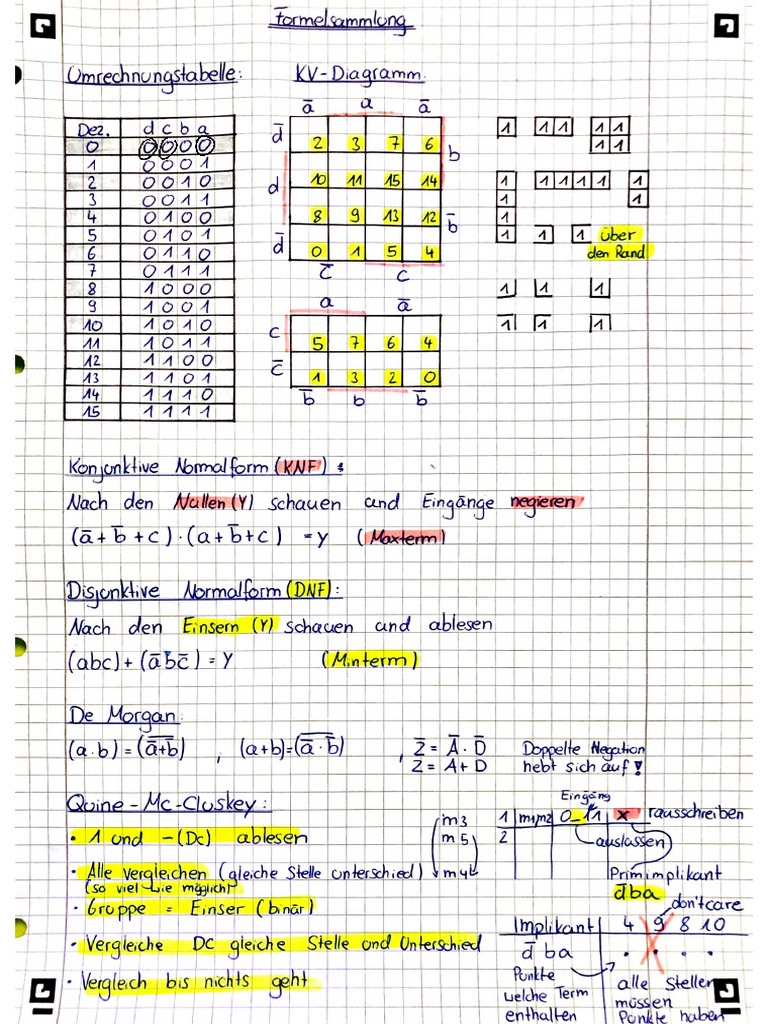 Formelsammlung
Umrechnungstabelle:
Dez. d c b a
0 0 0 0 0
1 0 0 0 1
2 0 0 1 0
3 0 0 1 1
4 0 1 0 0
5 0 1 0 1
6 0 1 1 0
7 0 1 1 1
8 1 0 0 0
9 1 0 0 1
10 1 0 1 0
11 1 0 1 1
12 1 1 0 0
13 1 1 0 1
14 1 1 1 0
15 1 1 1 1
KV-Diagramm
a̅ a a̅
d̅ 2 3 7 6 b
d 10 11 15 14
8 9 13 12 b̅
d̅ 0 1 5 4
c̅ c
a a̅
c 5 7 6 4
c̅ 1 3 2 0
b̅ b b̅
1 1 1 1 1
1 1
1 1 1 1 1 1
1 1
1
1 1 1 über
den Rand
1 1 1
1 1 1
Konjunktive Normalform (KNF):
Nach den Nullen (Y) schauen und Eingänge negieren
(a̅ + b̅ + c) · (a + b̅ + c) = y (Maxterm)
Disjunktive Normalform (DNF):
Nach den Einsern (Y) schauen und ablesen
(abc) + (a̅b̅c̅) = Y (Minterm)
De Morgan:
(a · b) = (a̅+b̅) , (a+b) = (a̅ · b̅) , Z̅ = A̅ · D̅ Doppelte Negation
Z = A + D hebt sich auf!
Quine-Mc-Cluskey:
• 1 und -(Dc) ablesen
• Alle vergleichen (gleiche Stelle unterschied)
(so viel wie möglich)
• Gruppe = Einser (binär)
• Vergleiche DC gleiche Stelle und Unterschied
• Vergleich bis nichts geht
m3
m5
m4
Eingang
1 m1,m2 0_11 x rausschreiben
2 auslassen
Primimplikant
d̅ba
don't care
Implikant 4 9 8 10
d̅ba • • • •
Punkte
welche Term
enthalten
alle Stellen
müssen
Punkte haben